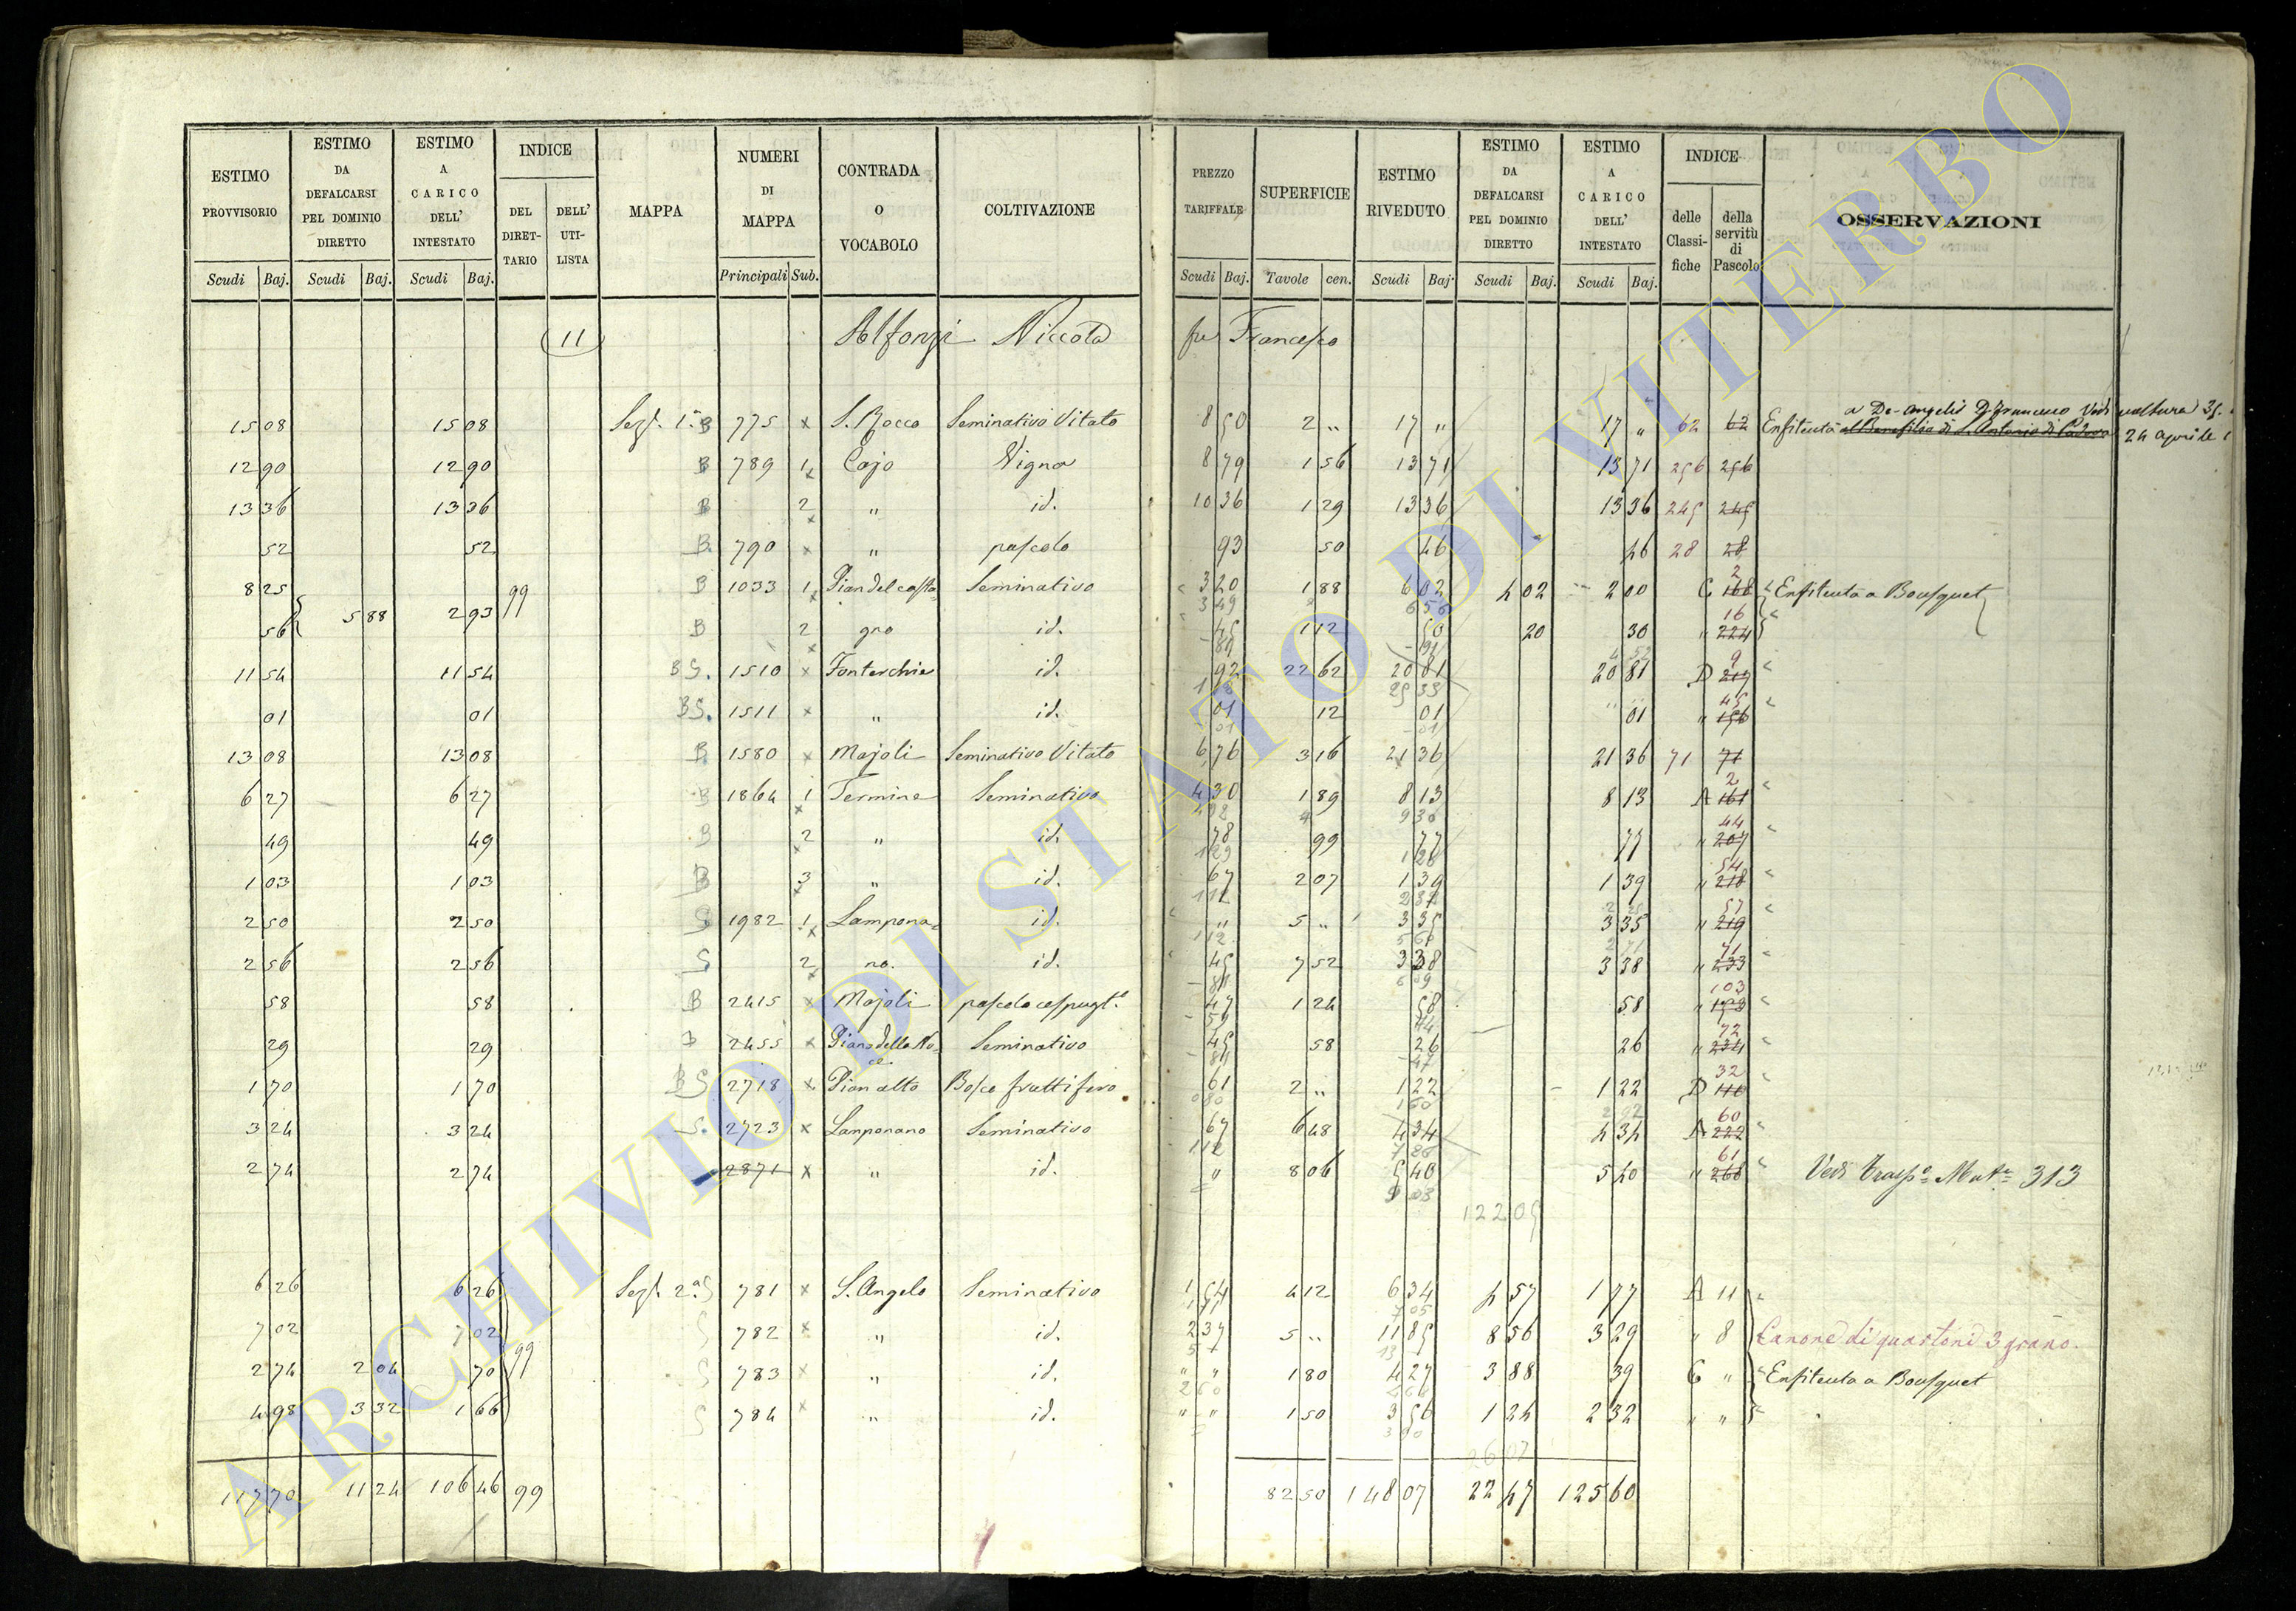 ESTIMO PROVVISORIO | ESTIMO DA DEFALCARSI PEL DOMINIO DIRETTO | ESTIMO A CARICO DELL' INTESTATO | INDICE | MAPPA | NUMERI DI MAPPA | CONTRADA O VOCABOLO | COLTIVAZIONE | PREZZO TARIFFALE | SUPERFICIE | ESTIMO RIVEDUTO | ESTIMO DA DEFALCARSI PEL DOMINIO DIRETTO | ESTIMO A CARICO DELL' INTESTATO | INDICE | OSSERVAZIONI
DEL DIRETTARIO | DELL' UTILISTA | delle Classifiche | della servitù di Pascolo
Scudi | Baj. | Scudi | Baj. | Scudi | Baj. | Principali | Sub. | Scudi | Baj. | Tavole | cen. | Scudi | Baj. | Scudi | Baj. | Scudi | Baj.
11 Alfonzi Niccola fu Francesco
15 08 | 15 08 | Sez. 1ª B | 775 x | S. Rocco | Seminativo Vitato | 8 50 | 2 „ | 17 „ | 17 „ | 62 | 62 | Enfiteuta a De-Angelis D. Francesco Vedi voltura 35. 24 aprile
12 90 | 12 90 | B | 789 | 1 x | Cajo | Vigna | 8 79 | 1 56 | 13 71 | 13 71 | 256 | 256
13 36 | 13 36 | B | 2 x | „ | id. | 10 36 | 1 29 | 13 36 | 13 36 | 245 | 245
52 | 52 | B. | 790 x | „ | pascolo | 93 | 50 | 46 | 46 | 28 | 28
8 25 | 99 | B | 1033 | 1 x | Pian del casta= | Seminativo | 3 20 | 1 88 | 6 02 | 4 02 | 2 00 | C | 168 | 2 | Enfiteuta a Bousquet
56 | 5 88 | 2 93 | B | 2 x | gno | id. | 45 | 1 12 | 50 | 20 | 30 | „ | 224 | 16
11 54 | 11 54 | BS. | 1510 x | Fontecchie | id. | 92 | 22 62 | 20 81 | 20 81 | D | 217 | 9
01 | 01 | BS. | 1511 x | „ | id. | 01 | 12 | 01 | 01 | „ | 156 | 45
13 08 | 13 08 | B. | 1580 x | Majoli | Seminativo Vitato | 6 76 | 3 16 | 21 36 | 21 36 | 71 | 71
6 27 | 6 27 | B | 1864 | 1 x | Termine | Seminativo | 4 30 | 1 89 | 8 13 | 8 13 | A | 161 | 2
49 | 49 | B | 2 x | „ | id. | 78 | 99 | 77 | 77 | „ | 207 | 44
1 03 | 1 03 | B | 3 x | „ | id. | 67 | 2 07 | 1 39 | 1 39 | „ | 218 | 54
2 50 | 2 50 | S | 1982 | 1 x | Lampona= | id. | „ | 5 „ | 3 35 | 3 35 | „ | 219 | 57
2 56 | 2 56 | S. | 2 x | no. | id. | 45 | 7 52 | 3 38 | 3 38 | „ | 233 | 71
58 | 58 | B | 2415 x | Majoli | pascolo cespugl.º | 47 | 1 24 | 58 | 58 | „ | 103
29 | 29 | B | 2455 x | Piano della No= ce | Seminativo | 45 | 58 | 26 | 26 | „ | 234 | 72
1 70 | 1 70 | BS | 2718 x | Pian alto | Bosco fruttifero | 61 | 2 „ | 1 22 | 1 22 | D | 32
3 24 | 3 24 | S. | 2723 x | Lamponano | Seminativo | 67 | 6 48 | 4 34 | 4 34 | A | 222 | 60
2 74 | 2 74 | 2871 x | „ | id. | „ | 8 06 | 5 40 | 5 40 | „ | 61 | Vedi Trasp.º Mut.e 313
122 05
6 26 | 6 26 | Sez. 2ª S | 781 x | S. Angelo | Seminativo | 1 54 | 4 12 | 6 34 | 4 57 | 1 77 | A | 11
7 02 | 7 02 | S | 782 x | „ | id. | 2 37 | 5 „ | 11 85 | 8 56 | 3 29 | „ | 8 | Canone di quartoni 3 grano.
2 74 | 2 04 | 70 | 99 | S | 783 x | „ | id. | „ „ | 1 80 | 4 27 | 3 88 | 39 | C | „ | Enfiteuta a Bousquet
4 98 | 3 32 | 1 66 | S | 784 x | „ | id. | „ „ | 1 50 | 3 56 | 1 24 | 2 32 | „ „
117 70 | 11 24 | 106 46 | 99 | 82 50 | 148 07 | 22 47 | 125 60
ARCHIVIO DI STATO DI VITERBO